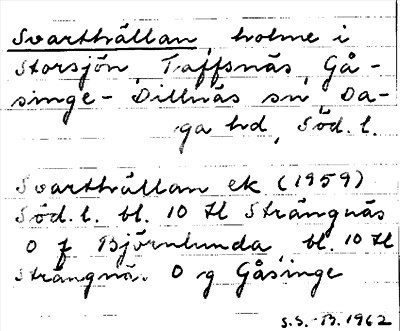 Svarthällan, holme i
Storsjön, Taffsnäs, Gå-
singe-Dillnäs sn, Da-
ga hd, Söd. l.
Svarthällan ek (1959)
Söd. l. bl. 10 H Strängnäs
O f Björnlunda, bl. 10 H
Strängnä. O g Gåsinge
S.S.-B. 1962